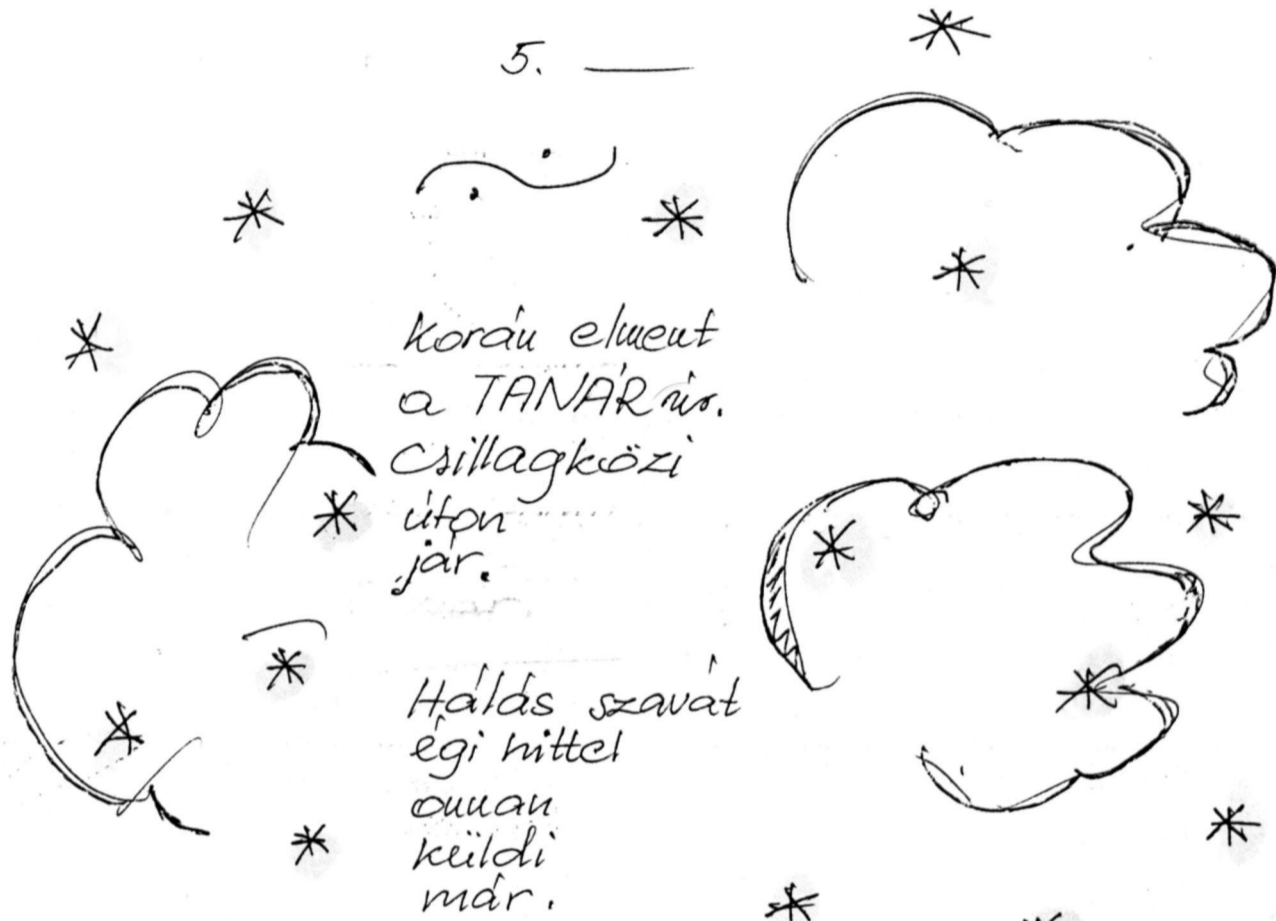 5. ____
Korán elment
a TANÁR úr.
Csillagközi
úton
jár.
Hálás szavát
égi hittel
onnan
küldi
már.